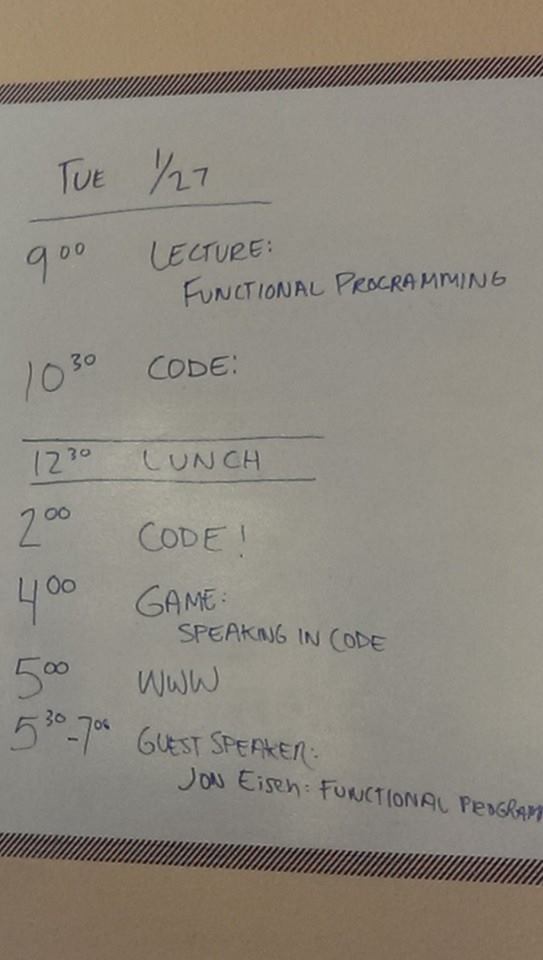 TUE 1/27
9:00 LECTURE:
FUNCTIONAL PROGRAMMING
10:30 CODE:
12:30 LUNCH
2:00 CODE!
4:00 GAME:
SPEAKING IN CODE
5:00 WWW
5:30-7:00 GUEST SPEAKER:
JON EISEN: FUNCTIONAL PROGRAM